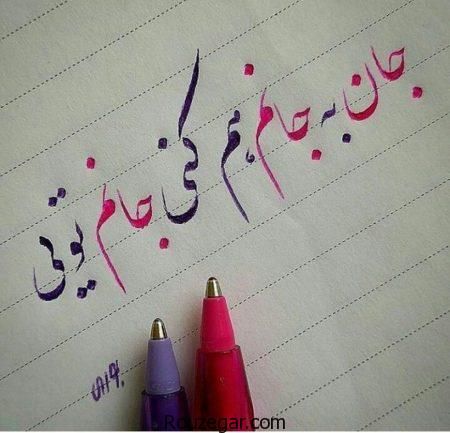 جان به جانم هم کنی جانم تویی
Rouzegar.com